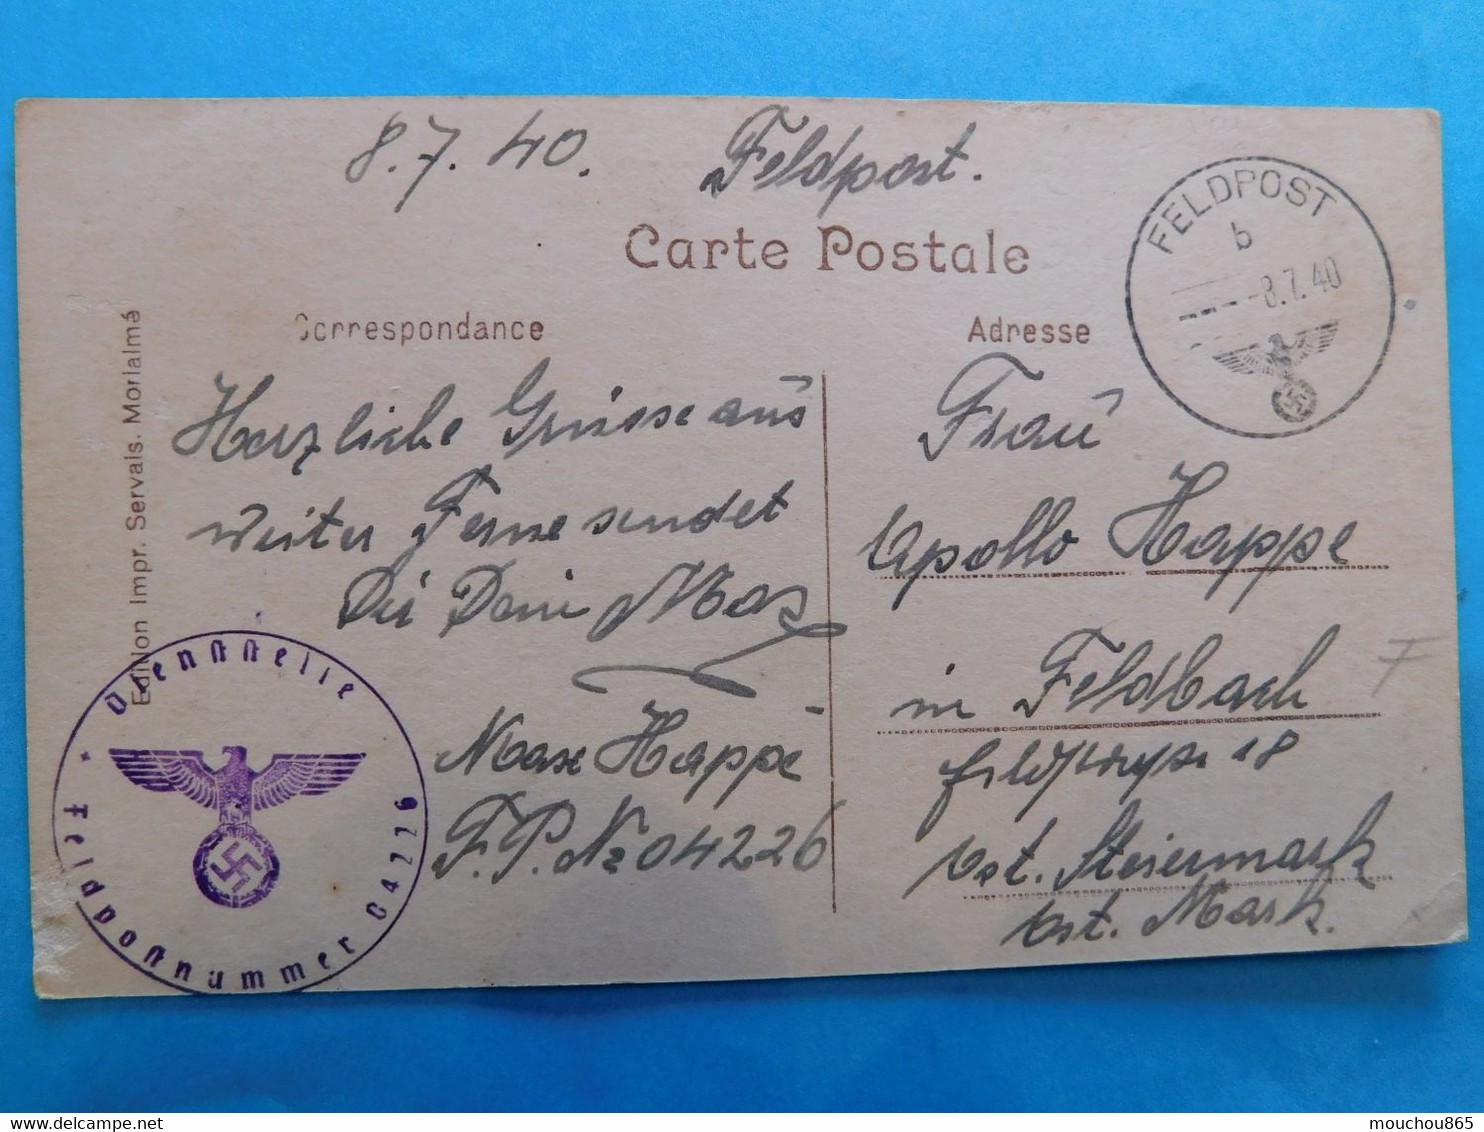 8.7.40.
Feldpost.
Carte Postale
FELDPOST
b
-8.7.40
Correspondance
Adresse
Edition Impr. Servais. Morialmé
Herzliche Grüsse aus
weiter Ferne sendet
Dir Dein Max
Max Happe
F.P.Nr 04226
Dienststelle
Feldpostnummer 04226
Frau
Apollo Happe
in Feldbach
18
Ost. Steiermark
Ost. Mark.
F
delcampe.net
mouchou865